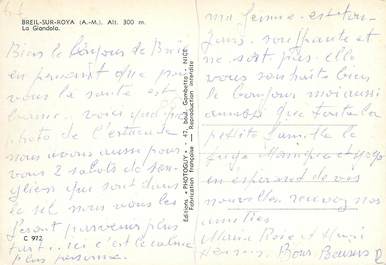 BREIL-SUR-ROYA (A.-M.). Alt. 300 m.
La Giandola.
Bien le bonjour de Breil
en pensant que pour
vous la santé est
bonne. vous
photo de l'entrée
nous avons aussi pour
vous 2 de
qui sont dans
le sel nous vous les
ferons parvenir plus
ici c'est le calme
plus personne.
C 972
Editions "PHOTOGUY" - 42, boul. Gambetta - NICE
Fabrication française - Reproduction interdite
ma femme est tou-
jours souffrante et
ne sort pas. elle
vous souhaite bien
le bonjour moi aussi
que toute la
petite famille le
Monique et
en espérant de vos
nouvelles recevez nos
amitiés
Marie Rose et Henri
Bons Baisers